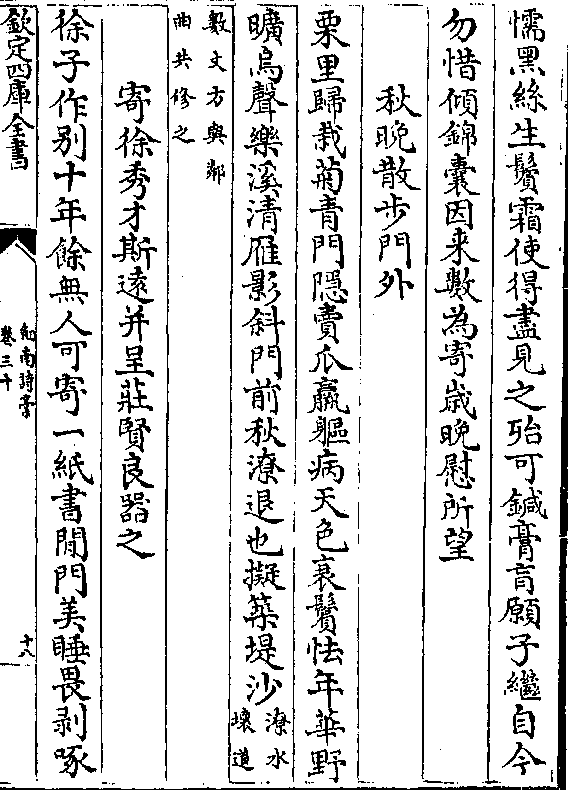 懦黑絲生鬢霜使得盡見之殆可鍼膏肓願子繼自今
勿惜傾錦囊因来數為寄歲晚慰所望
秋晚散步門外
栗里歸栽菊青門隱賣瓜羸軀病天色衰鬢怯年華野
曠烏聲樂溪清雁影斜門前秋潦退也擬築堤沙潦水壞道
數丈方與鄰曲共修之
寄徐秀才斯遠并呈莊賢良器之
徐子作别十年餘無人可寄一紙書閒門美睡畏剥啄
欽定四庫全書
劒南詩稾
卷三十
十八